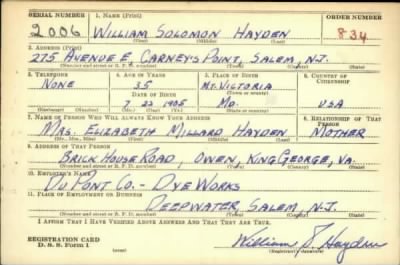 SERIAL NUMBER 1. NAME (Print) ORDER NUMBER
2006 WILLIAM SOLOMON HAYDEN 834
(First) (Middle) (Last)
2. ADDRESS (Print)
275 AVENUE E CARNEYS POINT, SALEM, N.J.
(Number and street or R. F. D. number) (Town) (County) (State)
3. TELEPHONE 4. AGE IN YEARS 5. PLACE OF BIRTH 6. COUNTRY OF CITIZENSHIP
NONE 35 MT. VICTORIA
DATE OF BIRTH (Town or county)
7 23 1905 MD. USA
(Mo.) (Day) (Yr.) (State or country)
7. NAME OF PERSON WHO WILL ALWAYS KNOW YOUR ADDRESS 8. RELATIONSHIP OF THAT PERSON
MRS. ELIZABETH MILLARD HAYDEN MOTHER
(Mr., Mrs., Miss) (First) (Middle) (Last)
9. ADDRESS OF THAT PERSON
BRICK HOUSE ROAD, OWEN, KING GEORGE, VA.
(Number and street or R. F. D. number) (Town) (County) (State)
10. EMPLOYER'S NAME
DU PONT CO. - DYE WORKS
11. PLACE OF EMPLOYMENT OR BUSINESS
DEEPWATER, SALEM, N.J.
(Number and street or R. F. D. number) (Town) (County) (State)
I AFFIRM THAT I HAVE VERIFIED ABOVE ANSWERS AND THAT THEY ARE TRUE.
REGISTRATION CARD
D. S. S. Form 1 William S. Hayden
(Registrant's signature)